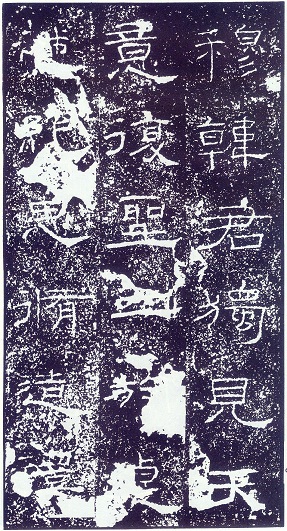 穆韓君獨見天
意復聖二族逴
越絕思脩造禮